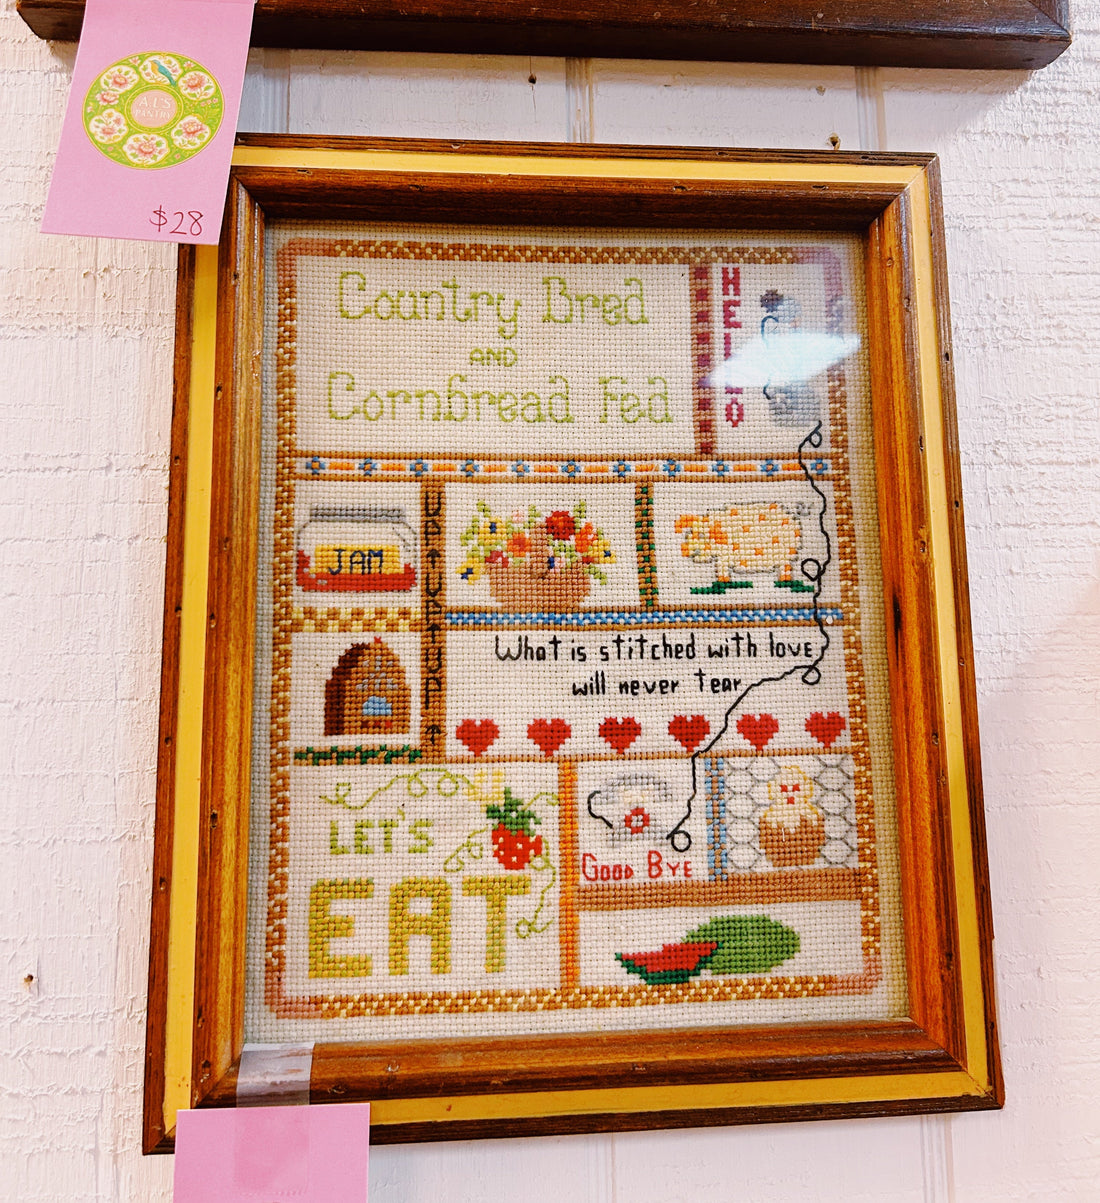 A.L'S
PANTRY
$28
Country Bred
AND
Cornbread Fed
HELLO
JAM
UP ↑ UP ↑ UP ↑
What is stitched with love
will never tear
LET'S
EAT
GOOD BYE